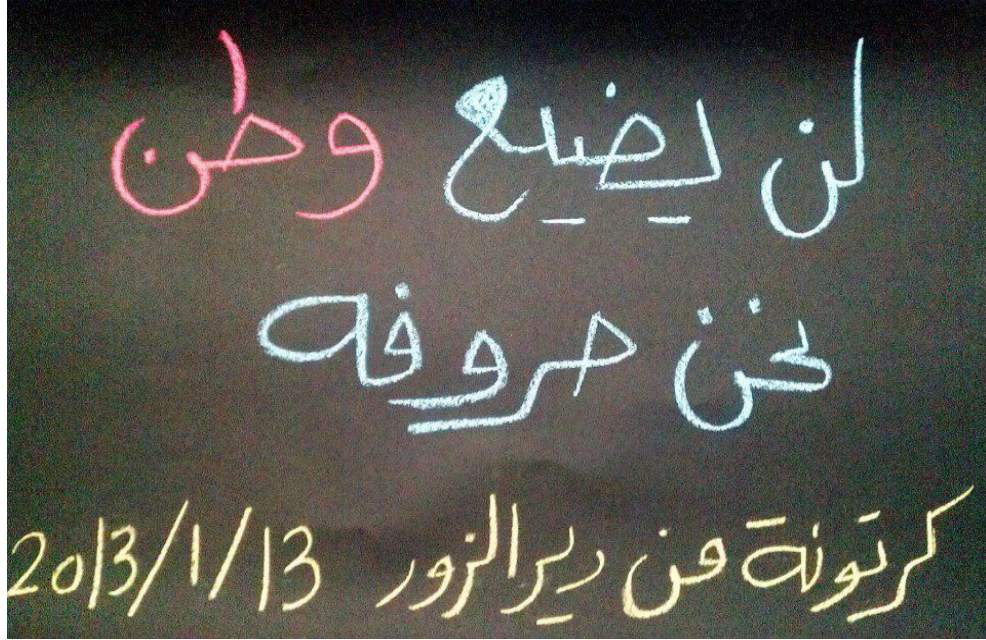 لن يضيع وطن
نحن حروفه
كرتونة من ديرالزور 2013/1/13